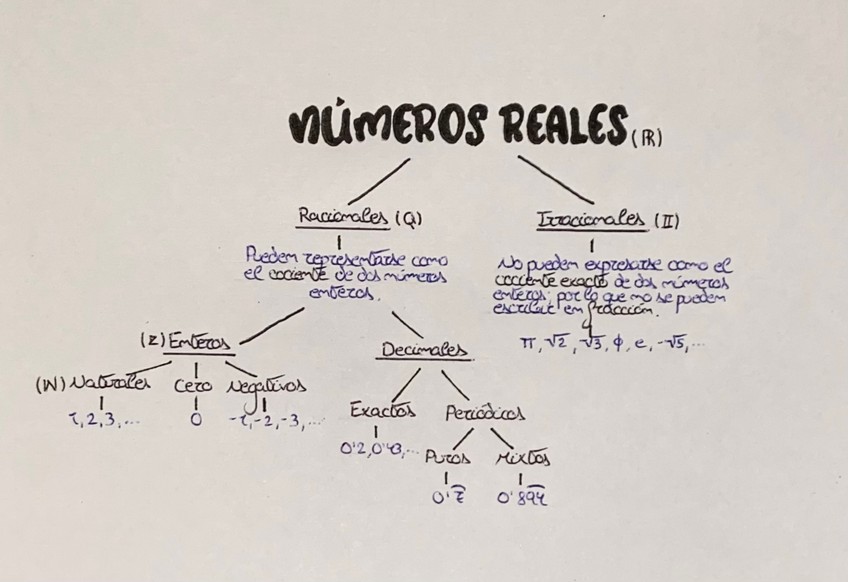 NÚMEROS REALES (ℝ)
Racionales (Q)
Irracionales (II)
Pueden representarse como
el cociente de dos números
enteros.
No pueden expresarse como el
cociente exacto de dos números
enteros, por lo que no se pueden
escribir en fracción.
π, √2, √3, ϕ, e, -√5, ...
(Z) Enteros
Decimales
(N) Naturales
Cero
Negativos
1, 2, 3, ...
0
-1, -2, -3, ...
Exactos
Periódicos
0'2, 0'43, ...
Puros
Mixtos
0'7̂
0'89͡4